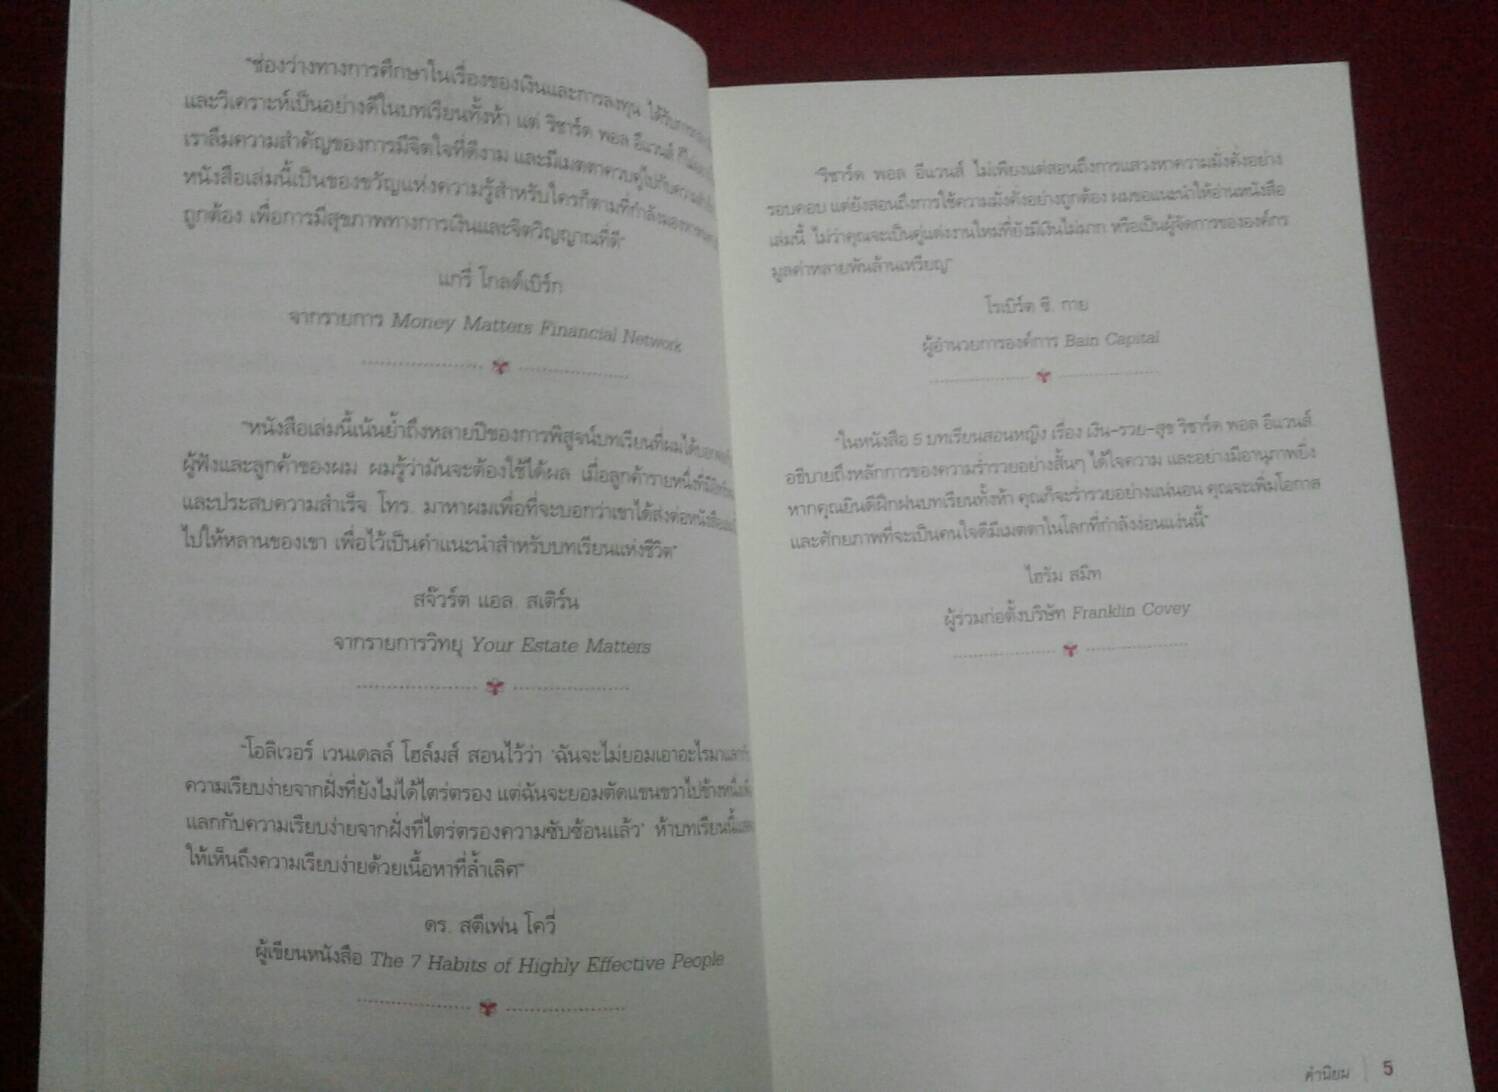 "ช่องว่างทางการศึกษาในเรื่องของเงินและการลงทุน ได้รับการ
และวิเคราะห์เป็นอย่างดีในบทเรียนทั้งห้า แต่ ริชาร์ด พอล อีแวนส์ ก็ไม่
เราลืมความสำคัญของการมีจิตใจที่ดีงาม และมีเมตตาควบคู่ไปกับความ
หนังสือเล่มนี้เป็นของขวัญแห่งความรู้สำหรับใครก็ตามที่กำลังมองหา
ถูกต้อง เพื่อการมีสุขภาพทางการเงินและจิตวิญญาณที่ดี"
แกรี่ โกลด์เบิร์ก
จากรายการ Money Matters Financial Network
"หนังสือเล่มนี้เน้นย้ำถึงหลายปีของการพิสูจน์บทเรียนที่ผมได้บอก
ผู้ฟังและลูกค้าของผม ผมรู้ว่ามันจะต้องใช้ได้ผล เมื่อลูกค้ารายหนึ่งที่
และประสบความสำเร็จ โทร. มาหาผมเพื่อที่จะบอกว่าเขาได้ส่งต่อหนังสือ
ไปให้หลานของเขา เพื่อไว้เป็นคำแนะนำสำหรับบทเรียนแห่งชีวิต"
สจ๊วร์ต แอล. สเติร์น
จากรายการวิทยุ Your Estate Matters
"โอลิเวอร์ เวนเดลล์ โฮล์มส์ สอนไว้ว่า 'ฉันจะไม่ยอมเอาอะไรมาแลกกับ
ความเรียบง่ายจากฝั่งที่ยังไม่ได้ไตร่ตรอง แต่ฉันจะยอมตัดแขนขวาไปข้างหนึ่ง
แลกกับความเรียบง่ายจากฝั่งที่ไตร่ตรองความซับซ้อนแล้ว' ห้าบทเรียนนี้
ให้เห็นถึงความเรียบง่ายด้วยเนื้อหาที่ล้ำเลิศ"
ดร. สตีเฟน โควี่
ผู้เขียนหนังสือ The 7 Habits of Highly Effective People
"ริชาร์ด พอล อีแวนส์ ไม่เพียงแต่สอนถึงการแสวงหาความมั่งคั่งอย่าง
รอบคอบ แต่ยังสอนถึงการใช้ความมั่งคั่งอย่างถูกต้อง ผมขอแนะนำให้อ่านหนังสือ
เล่มนี้ ไม่ว่าคุณจะเป็นคู่แต่งงานใหม่ที่ยังมีเงินไม่มาก หรือเป็นผู้จัดการขององค์กร
มูลค่าหลายพันล้านเหรียญ"
โรเบิร์ต ซี. กาย
ผู้อำนวยการองค์การ Bain Capital
"ในหนังสือ 5 บทเรียนสอนหญิง เรื่อง เงิน-รวย-สุข ริชาร์ด พอล อีแวนส์
อธิบายถึงหลักการของความร่ำรวยอย่างสั้นๆ ได้ใจความ และอย่างมีอานุภาพยิ่ง
หากคุณยินดีฝึกฝนบทเรียนทั้งห้า คุณก็จะร่ำรวยอย่างแน่นอน คุณจะเพิ่มโอกาส
และศักยภาพที่จะเป็นคนใจดีมีเมตตาในโลกที่กำลังง่อนแง่นนี้"
ไฮรัม สมิท
ผู้ร่วมก่อตั้งบริษัท Franklin Covey
คำนิยม 5